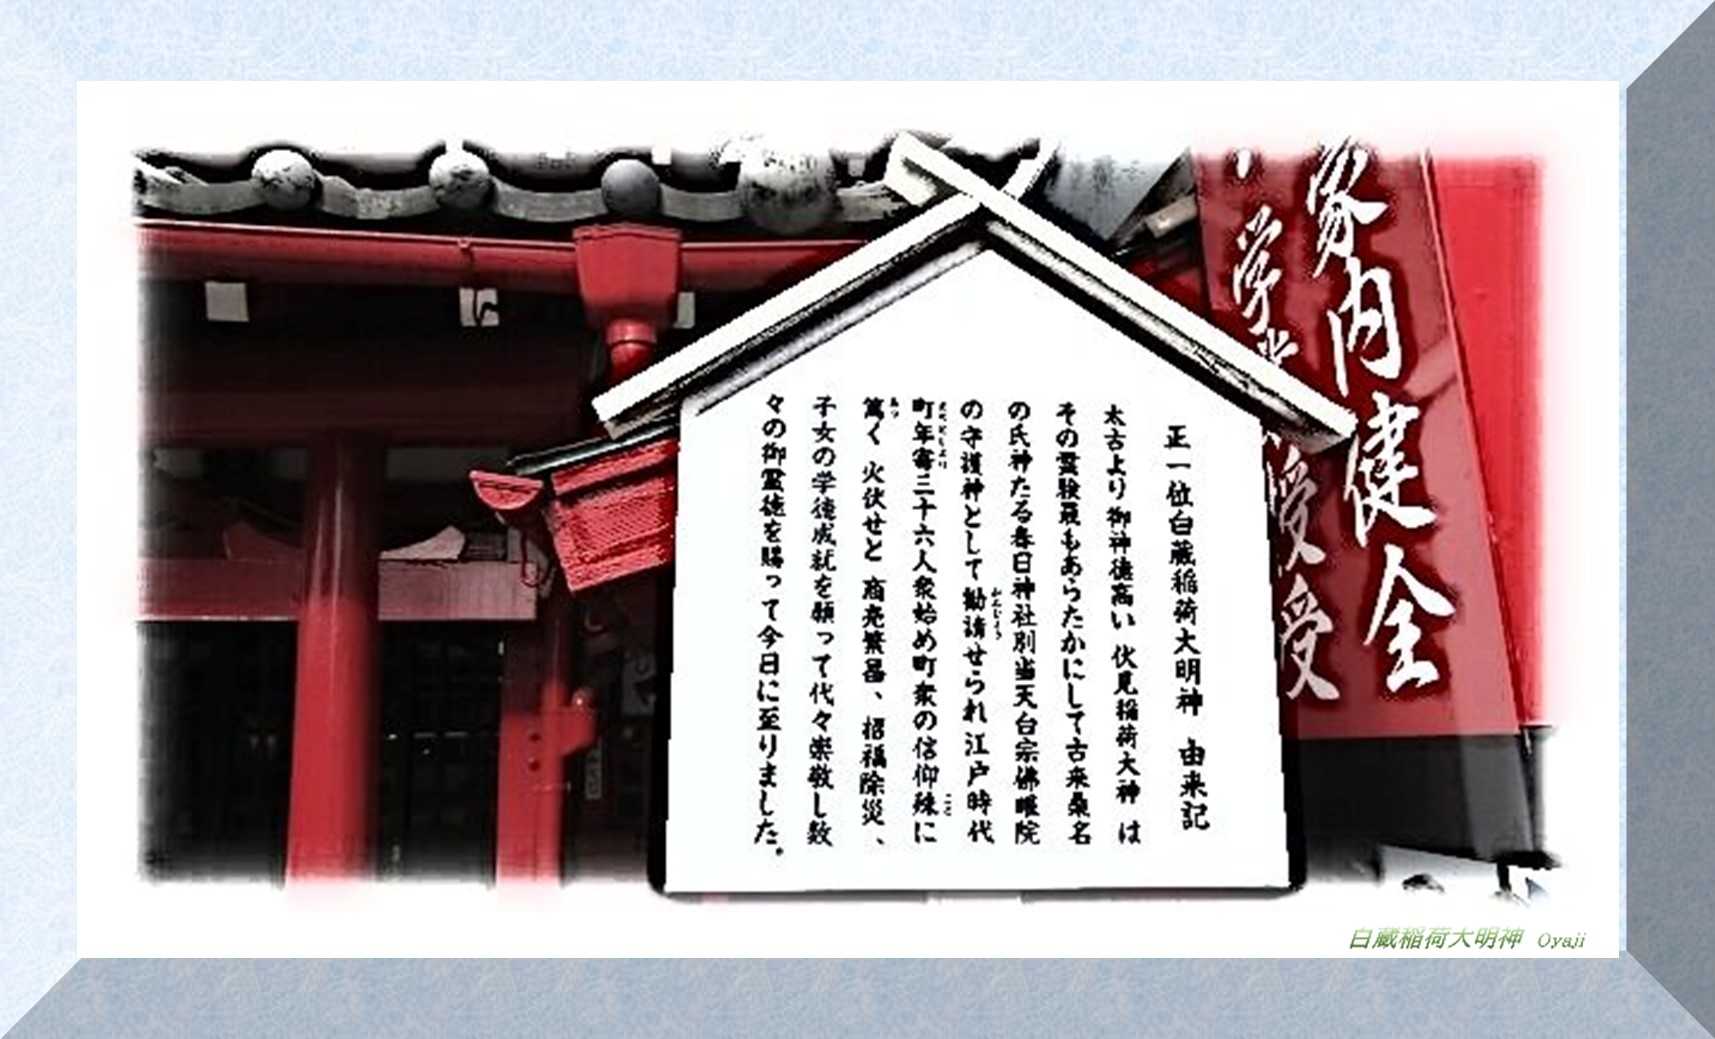 正一位白蔵稲荷大明神 由来記
太古より御神徳高い 伏見稲荷大神 は
その霊験最もあらたかにして古来桑名
の氏神たる春日神社別当天台宗佛眼院
の守護神として勧請せられ 江戸時代
町年寄三十六人衆始め町衆の信仰殊に
篤く 火伏せと 商売繁昌、招福除災、
子女の学徳成就を願って代々崇敬し数
々の御霊徳を賜って今日に至りました。
家内健全
授受
白蔵稲荷大明神 Oyaji